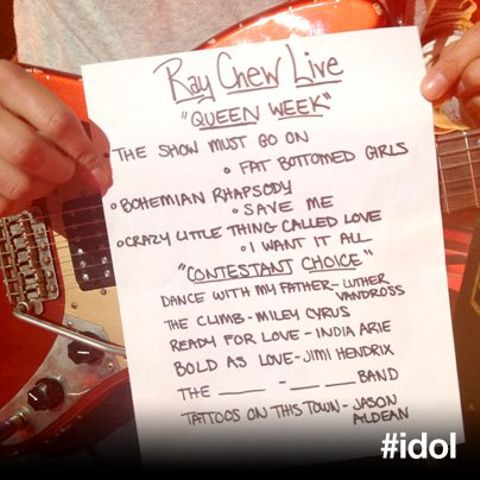 Ray Chew Live
"QUEEN WEEK"
• THE SHOW MUST GO ON
• FAT BOTTOMED GIRLS
• BOHEMIAN RHAPSODY
• SAVE ME
• CRAZY LITTLE THING CALLED LOVE
• I WANT IT ALL
"CONTESTANT CHOICE"
DANCE WITH MY FATHER - LUTHER
VANDROSS
THE CLIMB - MILEY CYRUS
READY FOR LOVE - INDIA ARIE
BOLD AS LOVE - JIMI HENDRIX
THE ____ - ___ ___ BAND
TATTOOS ON THIS TOWN - JASON
ALDEAN
#idol